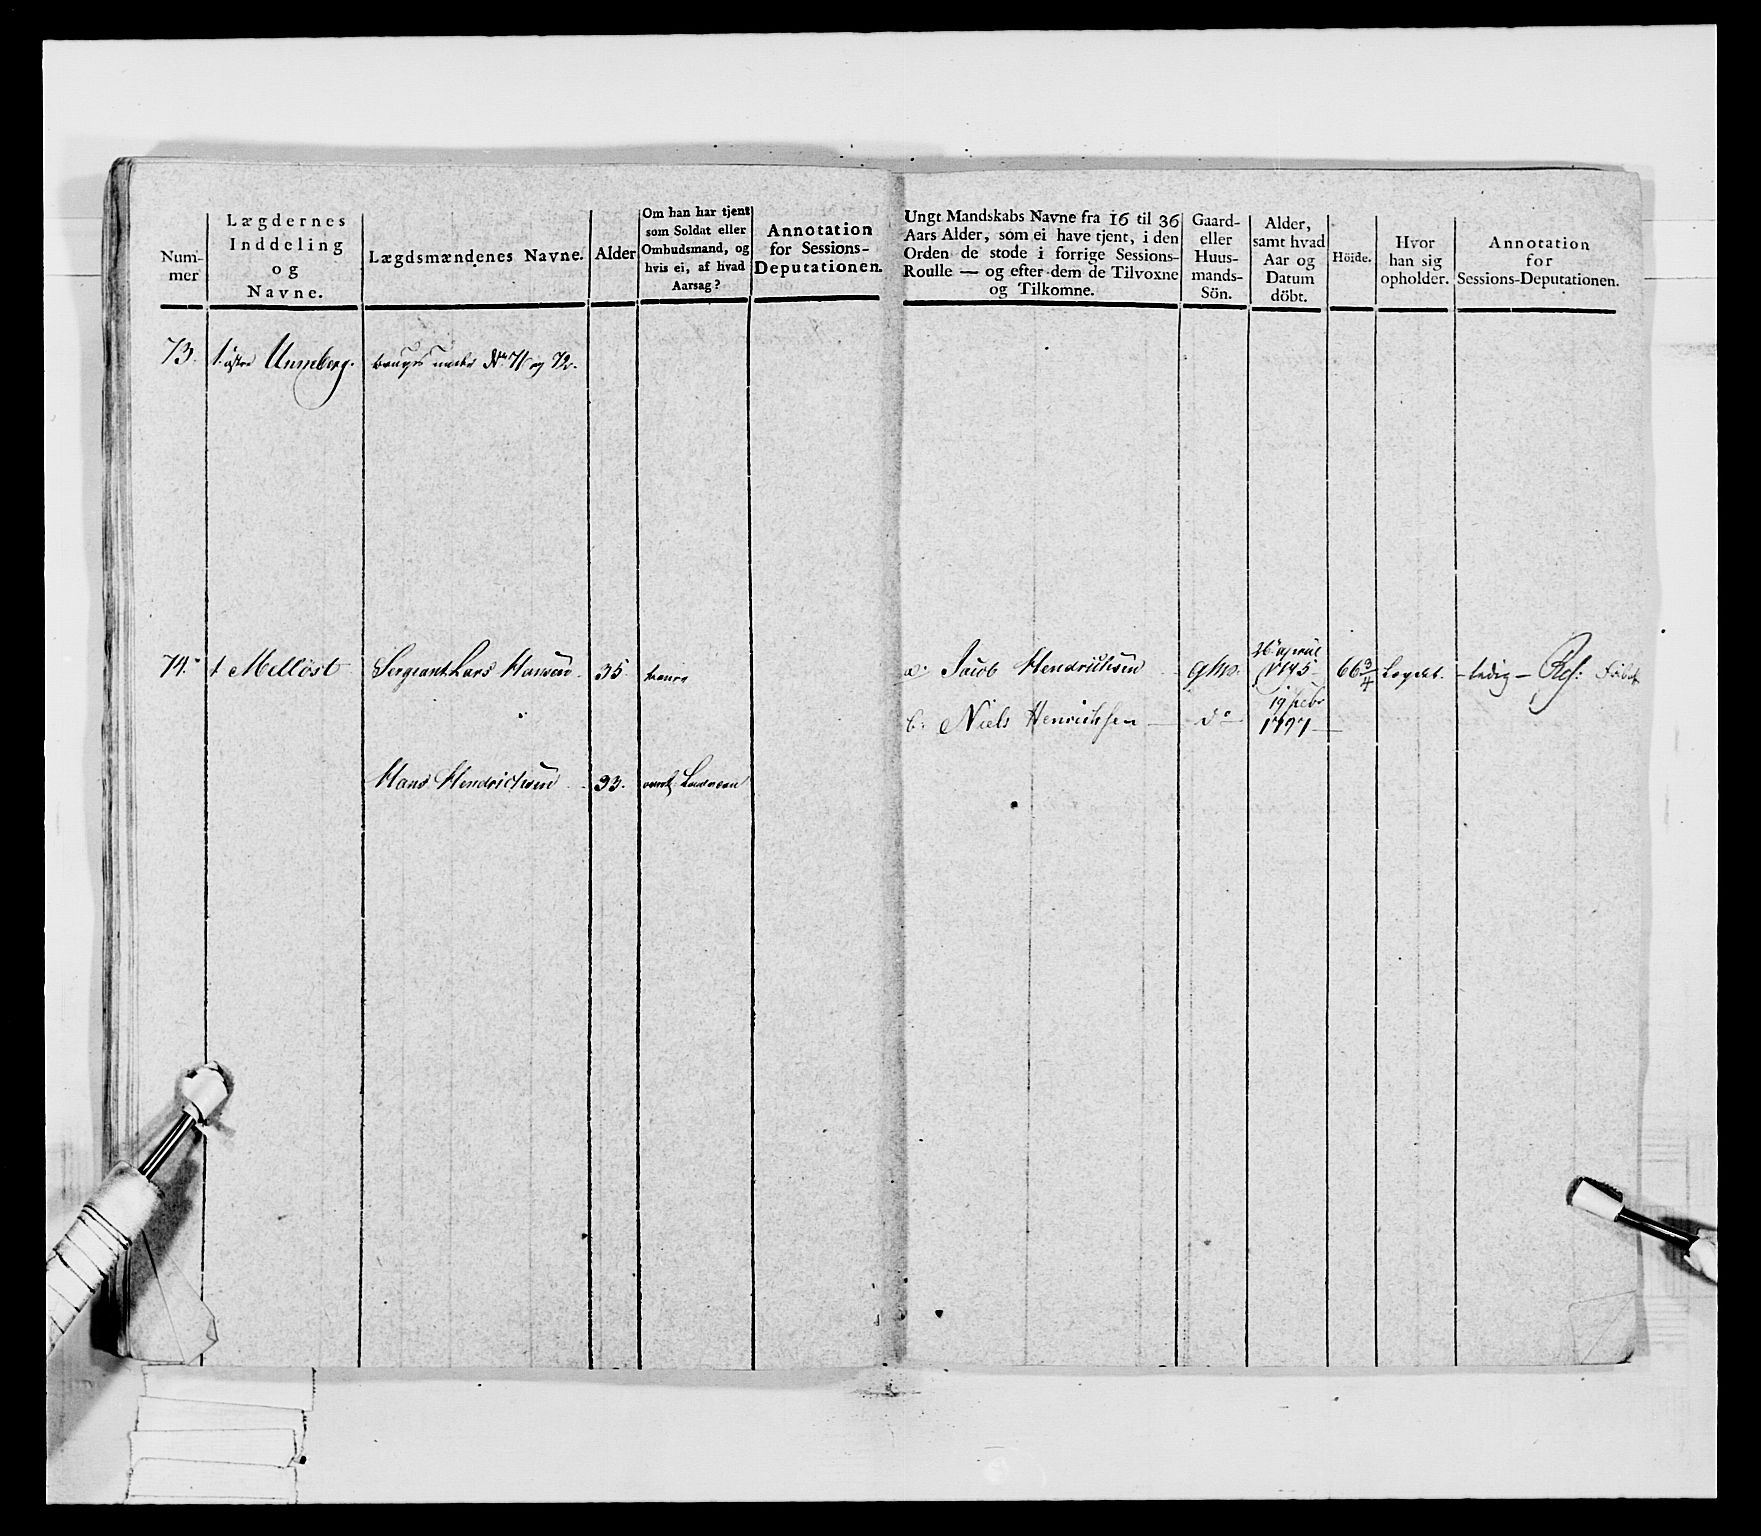 Num-
mer
Lægdernes
Inddeling
og
Navne.
Lægdsmændenes Navne.
Alder
Om han har tjent
som Soldat eller
Ombudsmand, og
hvis ei, af hvad
Aarsag?
Annotation
for Sessions-
Deputationen.
Ungt Mandskabs Navne fra 16 til 36
Aars Alder, som ei have tjent, i den
Orden de stode i forrige Sessions-
Roulle — og efter dem de Tilvoxne
og Tilkomne.
Gaard-
eller
Huus-
mands-
Sön.
Alder,
samt hvad
Aar og
Datum
döbt.
Höide.
Hvor
han sig
opholder.
Annotation
for
Sessions-Deputationen.
73. 1 østre Unneberg. bruges under No 71 og 72.
74. 1 Melløst Sergeant Lars Hansen 35
a. Jacob Hendrichsen 66 3/4 ledig
b. Niels Henrichsen do 19 febr 1791
Hans Hendrichsen 33.